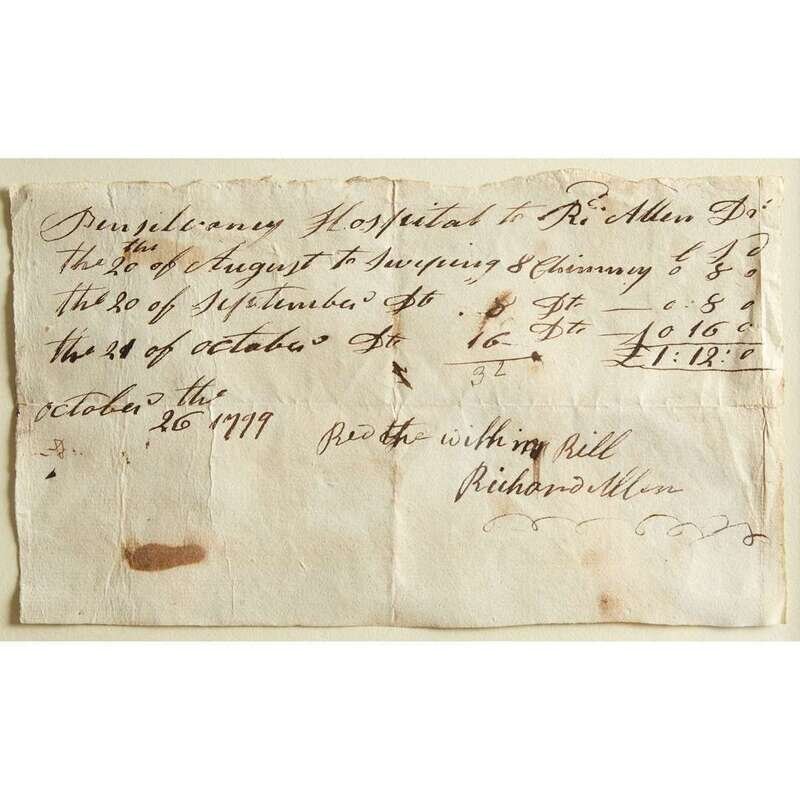 Pensilvaney Hospital to Rd. Allen Dr.
l s d
the 20th of August to Sweping 8 Chimney 0 8 0
the 20 of September Do 8 Do — 0 : 8 0
the 21 of October Do 16 Do — 0 16 0
32 £1 : 12 : 0
October the
26 1799
Recd the within Bill
Richard Allen